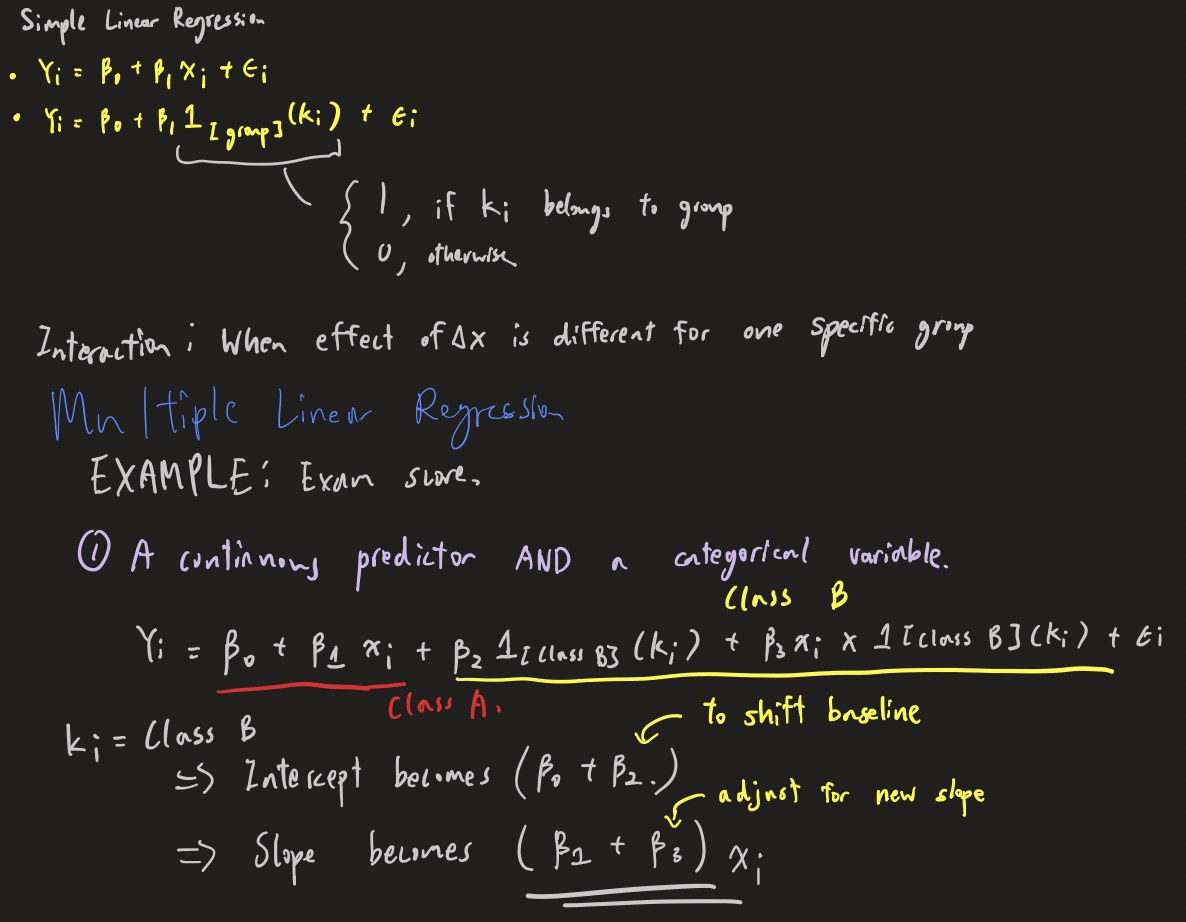 Simple Linear Regression
• Yi = β0 + β1 xi + ϵi
• Yi = β0 + β1 1[group](ki) + ϵi
{ 1, if ki belongs to group
0, otherwise
Interaction: When effect of Δx is different for one specific group
Multiple Linear Regression
EXAMPLE: Exam score.
① A continuous predictor AND a categorical variable.
Class B
Yi = β0 + β1 xi + β2 1[class B](ki) + β3 xi × 1[class B](ki) + ϵi
Class A.
ki = Class B
to shift baseline
=> Intercept becomes (β0 + β2.)
adjust for new slope
=> Slope becomes (β1 + β3) xi